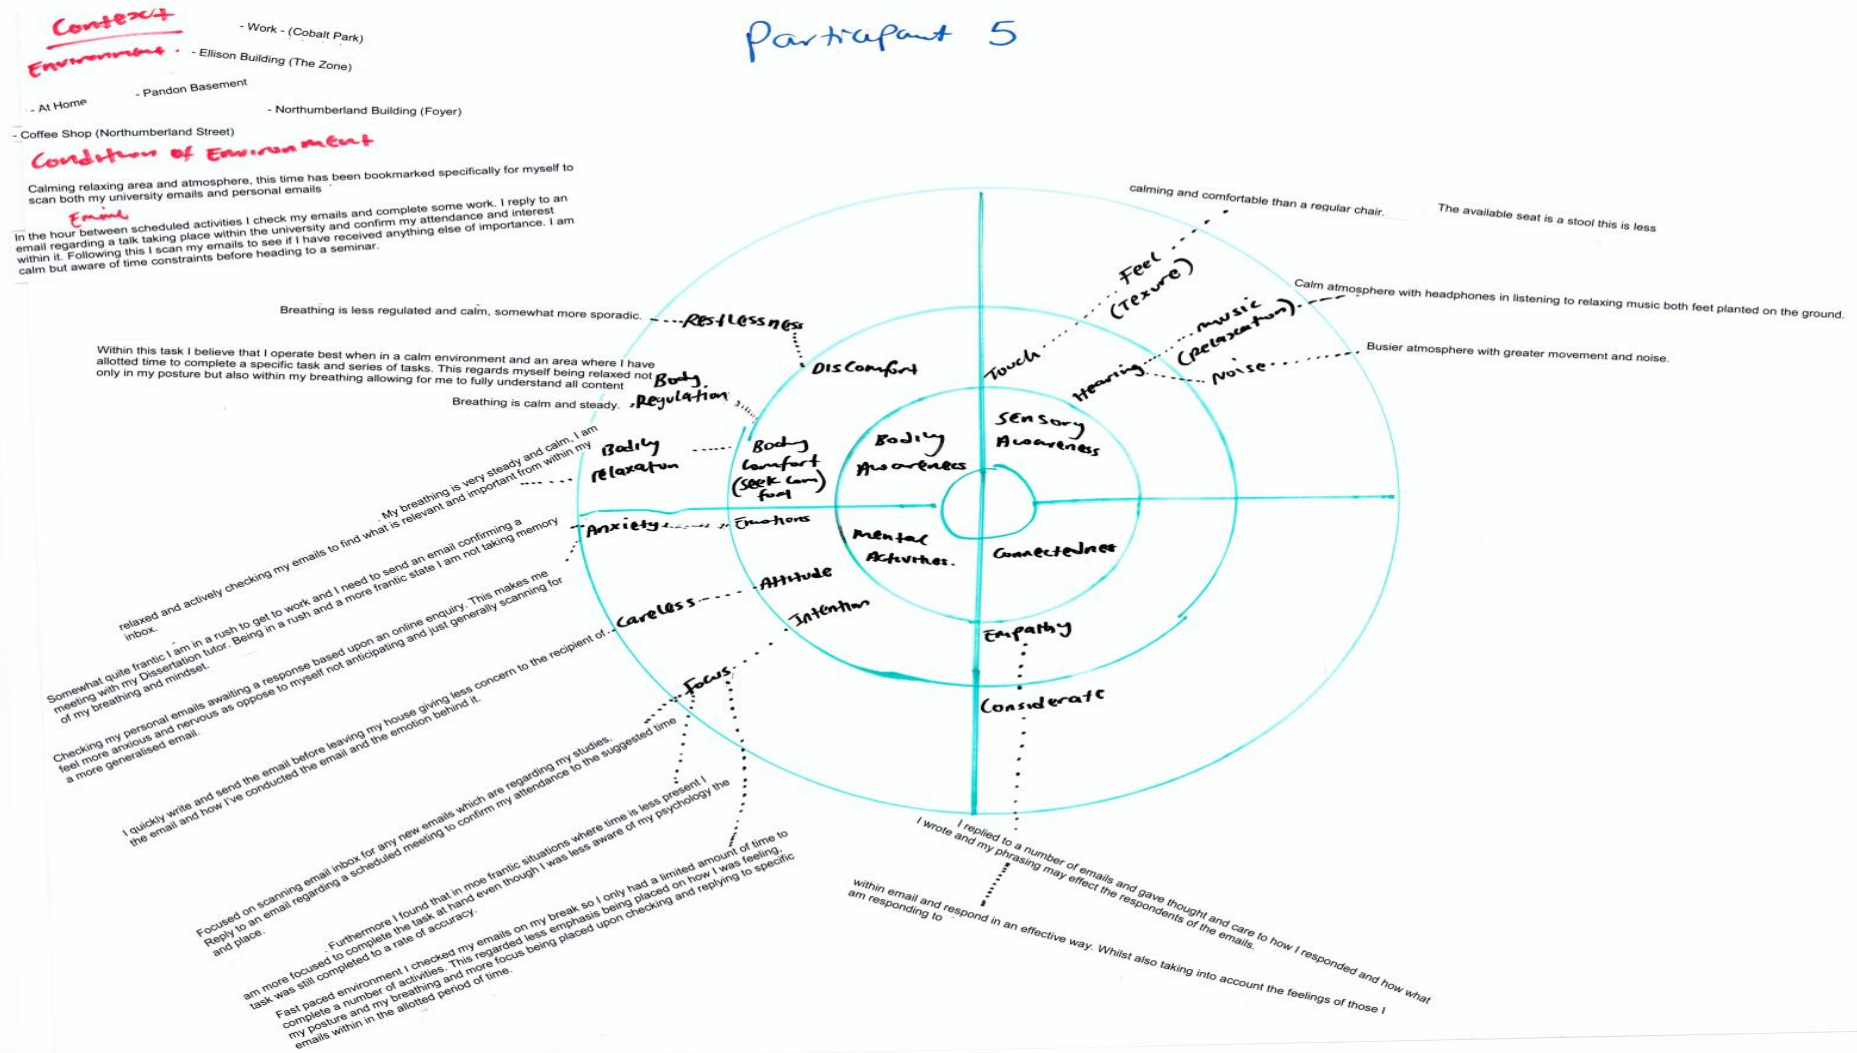 Participant 5
Context
Environment.
- Work - (Cobalt Park)
- Ellison Building (The Zone)
- At Home
- Pandon Basement
- Northumberland Building (Foyer)
- Coffee Shop (Northumberland Street)
Condition of Environment
Calming relaxing area and atmosphere, this time has been bookmarked specifically for myself to
scan both my university emails and personal emails
In the hour between scheduled activities I check my emails and complete some work. I reply to an
email regarding a talk taking place within the university and confirm my attendance and interest
within it. Following this I scan my emails to see if I have received anything else of importance. I am
calm but aware of time constraints before heading to a seminar.
Breathing is less regulated and calm, somewhat more sporadic.
Restlessness
Discomfort
Within this task I believe that I operate best when in a calm environment and an area where I have
allotted time to complete a specific task and series of tasks. This regards myself being relaxed not
only in my posture but also within my breathing allowing for me to fully understand all content
Body
Regulation
Breathing is calm and steady.
Bodily
relaxation
Body
Comfort
(seek com
fort)
Bodily
Awareness
My breathing is very steady and calm, I am
relaxed and actively checking my emails to find what is relevant and important from within my
inbox.
Anxiety
Emotions
Mental
Activities.
Somewhat quite frantic I am in a rush to get to work and I need to send an email confirming a
meeting with my Dissertation tutor. Being in a rush and a more frantic state I am not taking memory
of my breathing and mindset.
Checking my personal emails awaiting a response based upon an online enquiry. This makes me
feel more anxious and nervous as oppose to myself not anticipating and just generally scanning for
a more generalised email.
Careless
Attitude
Intention
I quickly write and send the email before leaving my house giving less concern to the recipient of
the email and how I've conducted the email and the emotion behind it.
Focus
Focused on scanning email inbox for any new emails which are regarding my studies.
Reply to an email regarding a scheduled meeting to confirm my attendance to the suggested time
and place.
. Furthermore I found that in moe frantic situations where time is less present I
am more focused to complete the task at hand even though I was less aware of my psychology the
task was still completed to a rate of accuracy.
Fast paced environment I checked my emails on my break so I only had a limited amount of time to
complete a number of activities. This regarded less emphasis being placed on how I was feeling,
my posture and my breathing and more focus being placed upon checking and replying to specific
emails within in the allotted period of time.
calming and comfortable than a regular chair.
The available seat is a stool this is less
Feel
(Texure)
Touch
Calm atmosphere with headphones in listening to relaxing music both feet planted on the ground.
music
(relaxation)
Hearing
Noise
Busier atmosphere with greater movement and noise.
Sensory
Awareness
Connectednes
Empathy
Considerate
I replied to a number of emails and gave thought and care to how I responded and how what
I wrote and my phrasing may effect the respondents of the emails.
within email and respond in an effective way. Whilst also taking into account the feelings of those I
am responding to